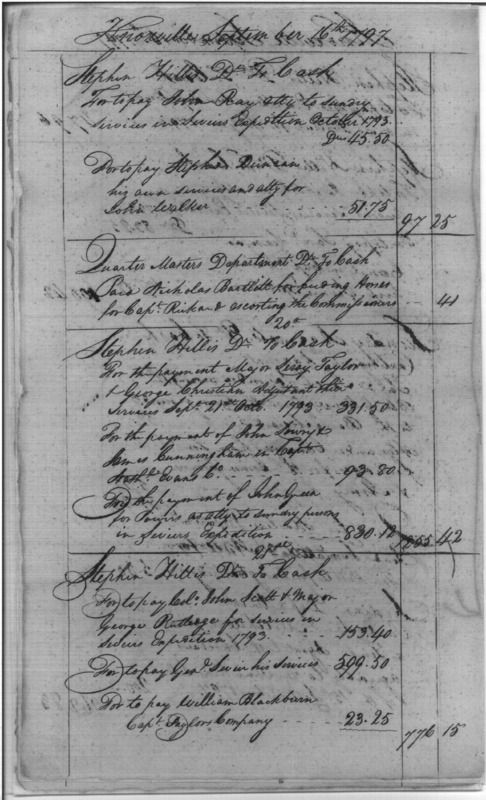 Knoxville September 16th 1797
Stephen Hillis Dr. To Cash
For to pay John Ray atty to sundry
services in Seviers Expedition October 1793
Drs 45.50
For to pay Stephen Duncan
his own services and atty for
John Walker 51.75 97 25
Quarter Masters Department Dr. To Cash
Paid Nicholas Bartlett for feeding Horses
for Capt. Rickard escorting the Commissioners 41
20th
Stephen Hillis Dr To Cash
For the payment Major Leroy Taylor
& George Christian Adjutant their
Services Sept. 21st Octo. 1793 331.50
For the payment of John Lowry &
James Cunningham in Capt.
Nathl. Evans Co. 93.80
For the payment of John Green
for as atty to sundry persons
in Seviers Expedition 830.12 42
21st
Stephen Hillis Dr To Cash
For to pay Colo. John Scott & Major
George Rutledge for services in
Seviers Expedition 1793 153.40
For to pay Genl. Sevier his Services 599.50
For to pay William Blackburn
Capt. Taylors Company 23.25
776 15